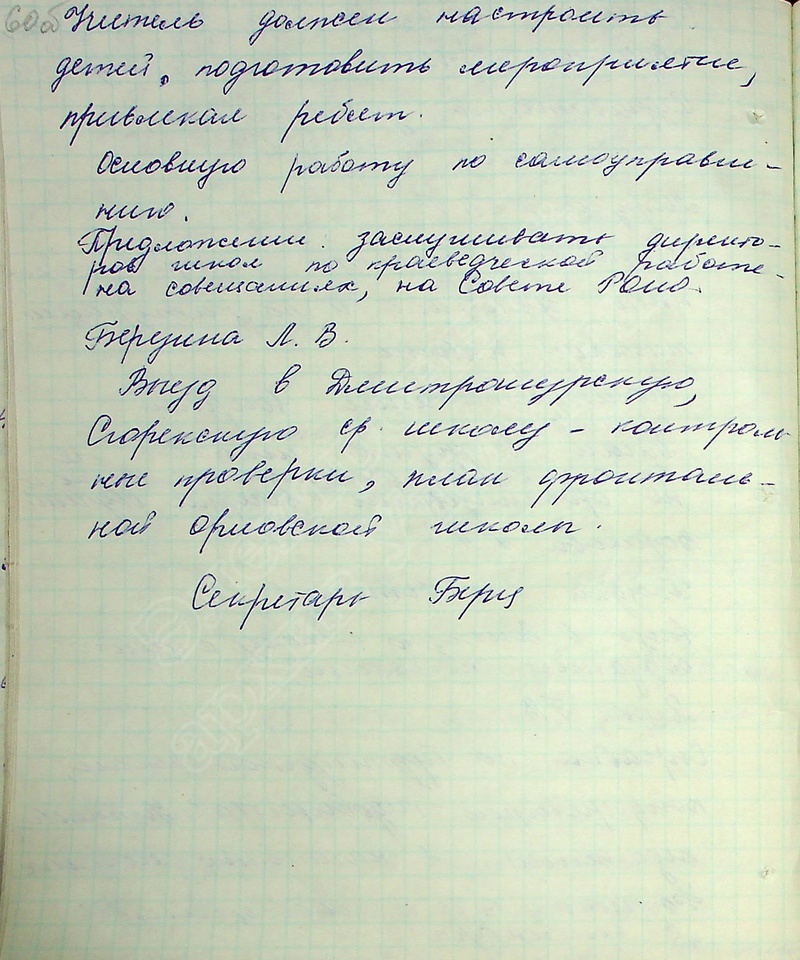 60об
Учитель должен настроить
детей, подготовить мероприятие,
привлекая ребят.
Основную работу по самоуправле-
нию.
Предложении заслушивать директо-
ров школ по краеведческой работе
на совещаниях, на Совете Роно.
Березина Л. В.
Выезд в Дмитрошурскую,
ср. школу - контроль-
ные проверки, план фронталь-
ной орловской школы.
Секретарь